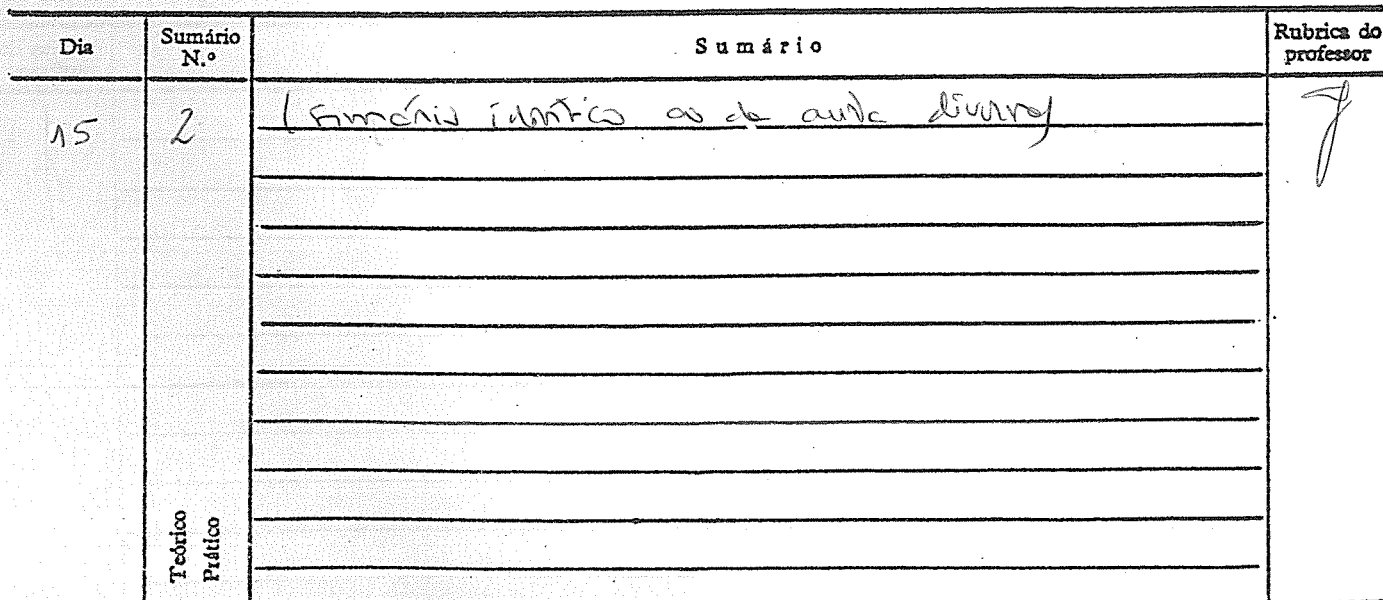 Dia
Sumário N.º
Sumário
Rubrica do professor
15
2
(Sumário idêntico ao da aula diurna)
Teórico
Prático